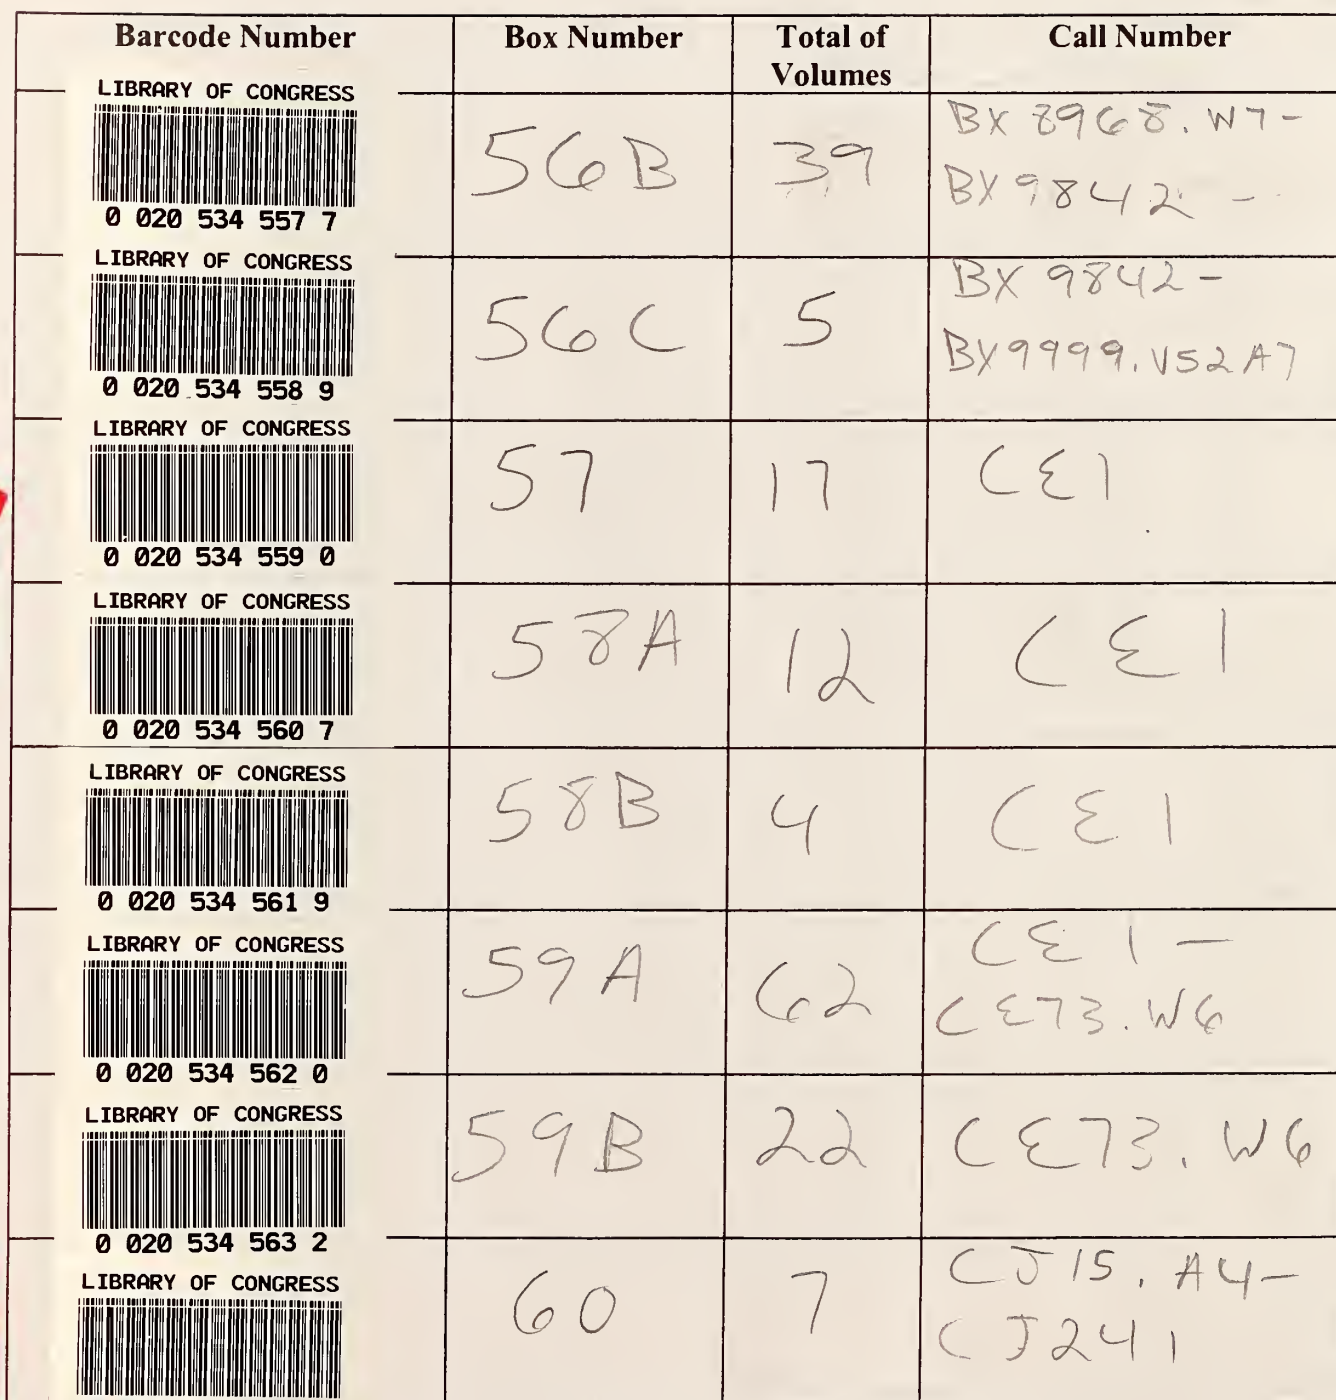 Barcode Number Box Number Total of Volumes Call Number
LIBRARY OF CONGRESS
0 020 534 557 7
56B 39 BX 8968. W7-
BX 9842 -
LIBRARY OF CONGRESS
0 020 534 558 9
56C 5 BX 9842-
BX9999. V52 A7
LIBRARY OF CONGRESS
0 020 534 559 0
57 17 CE1
LIBRARY OF CONGRESS
0 020 534 560 7
58A 12 CE 1
LIBRARY OF CONGRESS
0 020 534 561 9
58B 4 CE 1
LIBRARY OF CONGRESS
0 020 534 562 0
59A 62 CE 1 -
CE73. W6
LIBRARY OF CONGRESS
0 020 534 563 2
59B 22 CE73. W6
LIBRARY OF CONGRESS
60 7 CJ15. A4-
CJ241